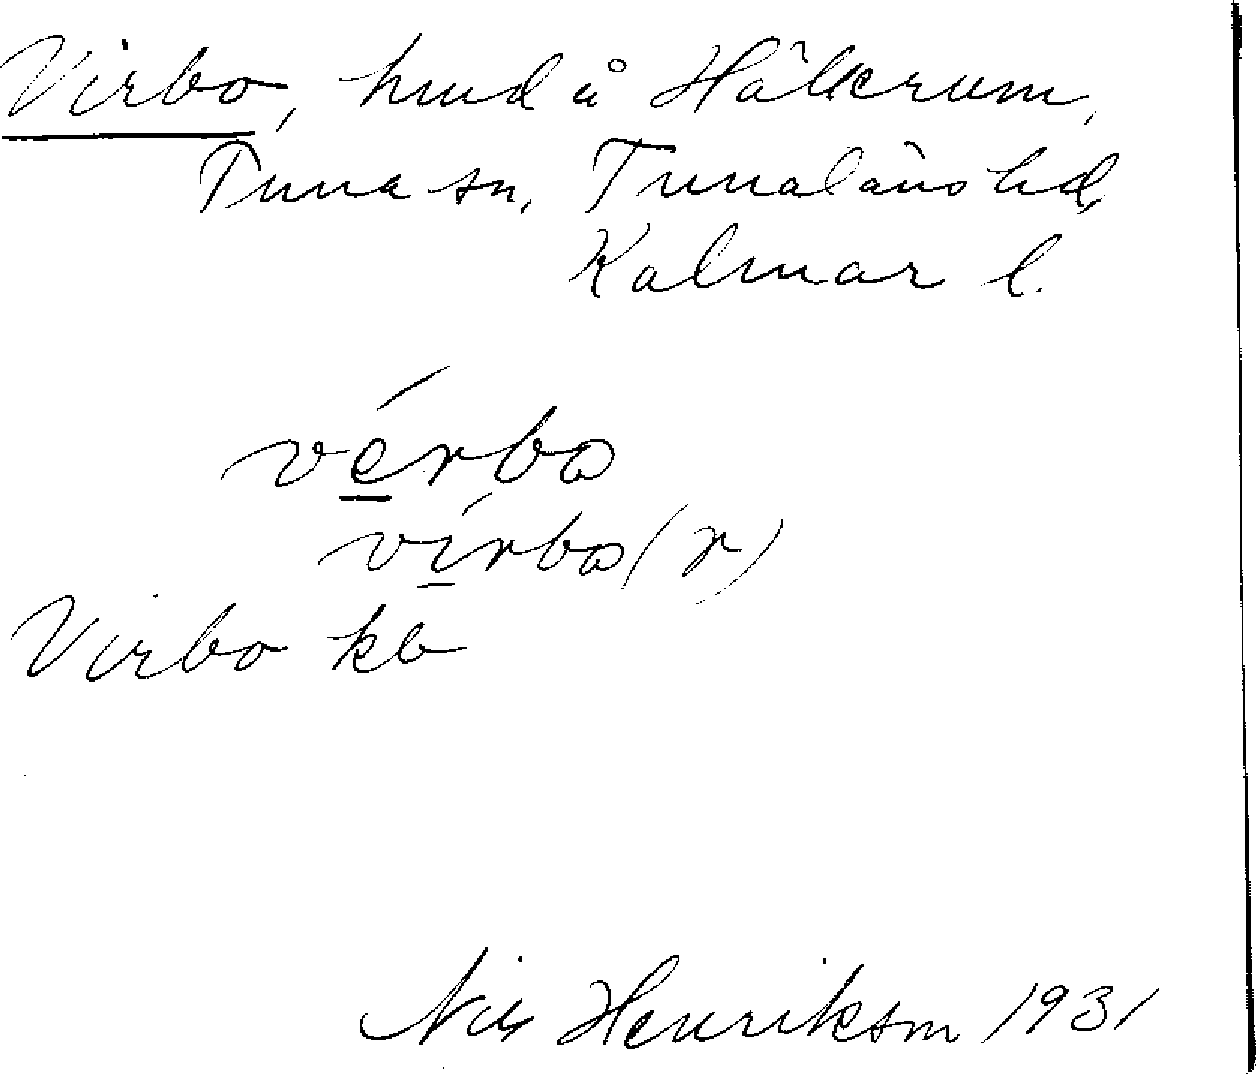 Virbo, hmd å Hälkrum,
Tuna sn, Tunaläns hd,
Kalmar l.
vérbo
vírbo(r)
Virbo kb
Nils Henrikson 1931